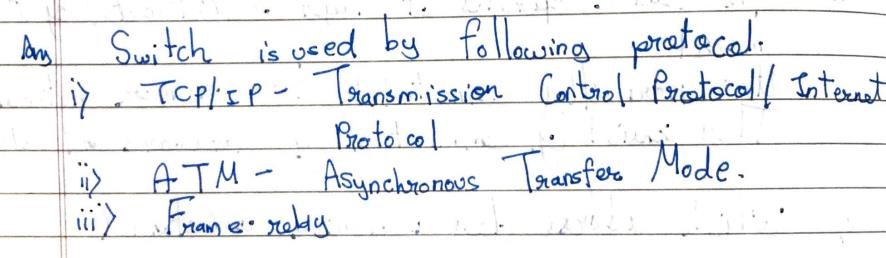 Ans Switch is used by following protocol.
i) TCP/IP - Transmission Control Protocol / Internet
Protocol
ii) ATM - Asynchronous Transfer Mode.
iii) Frame relay